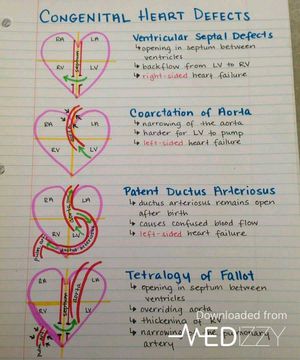 CONGENITAL HEART DEFECTS
RA LA
septum
RV LV
Ventricular Septal Defects
↳ opening in septum between
ventricles
↳ backflow from LV to RV
↳ right-sided heart failure
RA LA
aorta
RV LV
Coarctation of Aorta
↳ narrowing of the aorta
↳ harder for LV to pump
↳ left-sided heart failure
RA LA
RV LV
ductus arteriosus
Patent Ductus Arteriosus
↳ ductus arteriosus remains open
after birth
↳ causes confused blood flow
↳ left-sided heart failure
RA LA
septum
aorta
RV LV
Tetralogy of Fallot
↳ opening in septum between
ventricles
↳ overriding aorta
↳ thickening of RV
↳ narrowing of the pulmonary
artery
Downloaded from
MEDIZZY